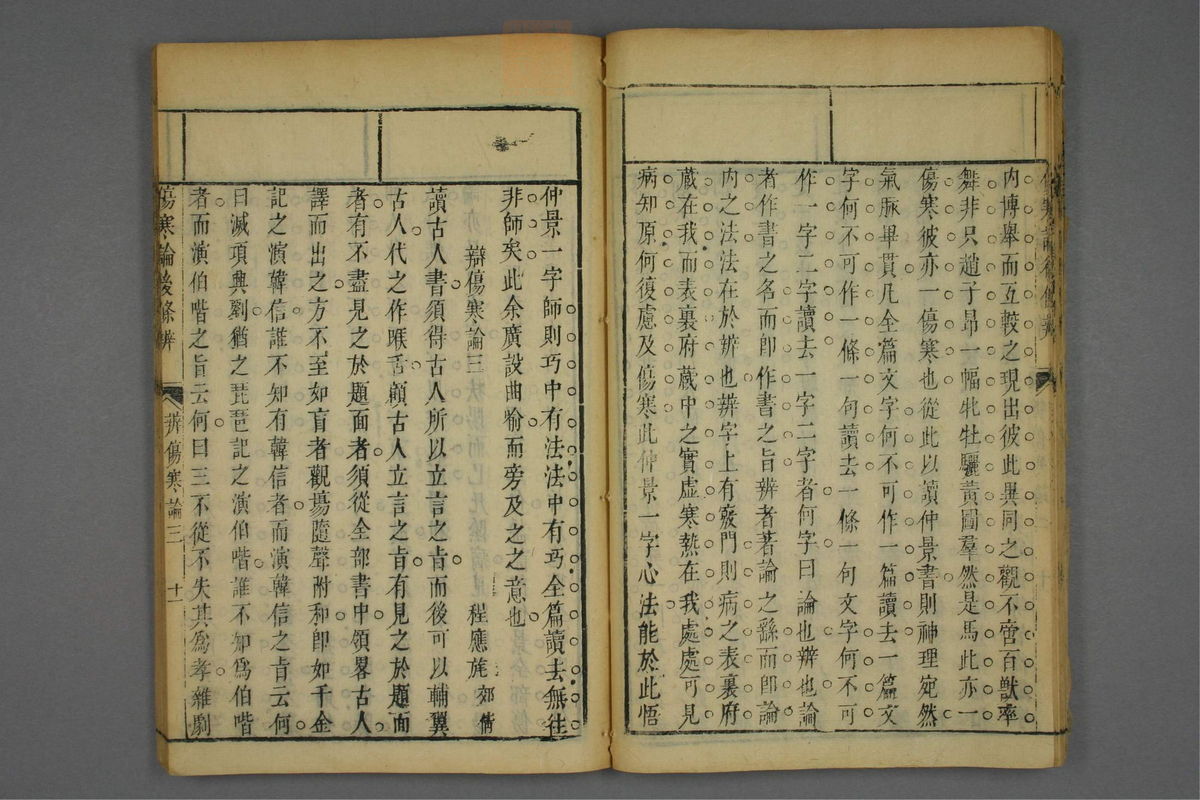 內博舉而互較之現出彼此異同之觀不啻百獸率
舞非只趙子昂一幅牝牡驪黃圖羣然是馬此亦一
傷寒彼亦一傷寒也從此以讀仲景書則神理宛然
氣脉畢貫凡全篇文字何不可作一篇讀去一篇文
字何不可作一條一句讀去一條一句文字何不可
作一字二字讀去一字二字者何字曰論也辨也論
者作書之名而卽作書之旨辨者著論之繇而卽論
內之法法在於辨也辨字上有竅門則病之表裏府
蔵在我而表裏府蔵中之實虛寒熱在我處處可見
病知原何復慮及傷寒此仲景一字心法能於此悟
仲景一字師則巧中有法法中有巧全篇讀去無往
非師矣此余廣設曲喻而旁及之之意也
辯傷寒論三 程應旄 郊倩
讀古人書須得古人所以立言之旨而後可以輔翼
古人代之作喉舌顧古人立言之旨有見之於題面
者有不盡見之於題面者須從全部書中領畧古人
譯而出之方不至如盲者觀塲隨聲附和卽如千金
記之演韓信誰不知有韓信者而演韓信之旨云何
曰滅項興劉猶之琵琶記之演伯喈誰不知爲伯喈
者而演伯喈之旨云何曰三不從不失其爲孝雜劇
傷寒論後條辨 辨傷寒論三 十一